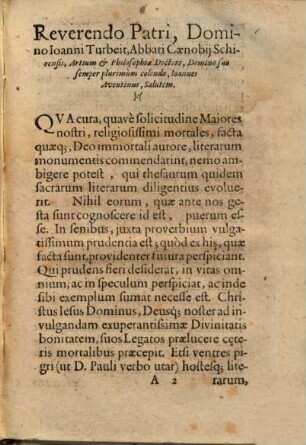 Reverendo Patri, Domi-
no Ioanni Turbeit, Abbati Cœnobij Schi-
rensis, Artium & Philosophiæ Doctori, Domino suo
semper plurimùm colendo, Ioannes
Aventinus, Salutem.
QVA cura, quavè solicitudine Maiores
nostri, religiosissimi mortales, facta
quæq;, Deo immortali autore, literarum
monumentis commendarint, nemo am-
bigere potest, qui thesaurum quidem
sacrarum literarum diligentius evolue-
rit. Nihil eorum, quæ ante nos ge-
sta sunt cognoscere id est, puerum es-
se. In senibus, juxta proverbium vulga-
tissimum prudentia est; quòd ex his, quæ
facta sunt, providenter futura perspiciant.
Qui prudens fieri desiderat, in vitas om-
nium, ac in speculum perspiciat, ac inde
sibi exemplum sumat necesse est. Chri-
stus Iesus Dominus, Deusq; noster ad in-
vulgandam exuperantissimæ Divinitatis
bonitatem, suos Legatos prælucere cęte-
ris mortalibus præcepit. Etsi ventres pi-
gri (ut D. Pauli verbo utar) hostesq; lite-
A 2 rarum,